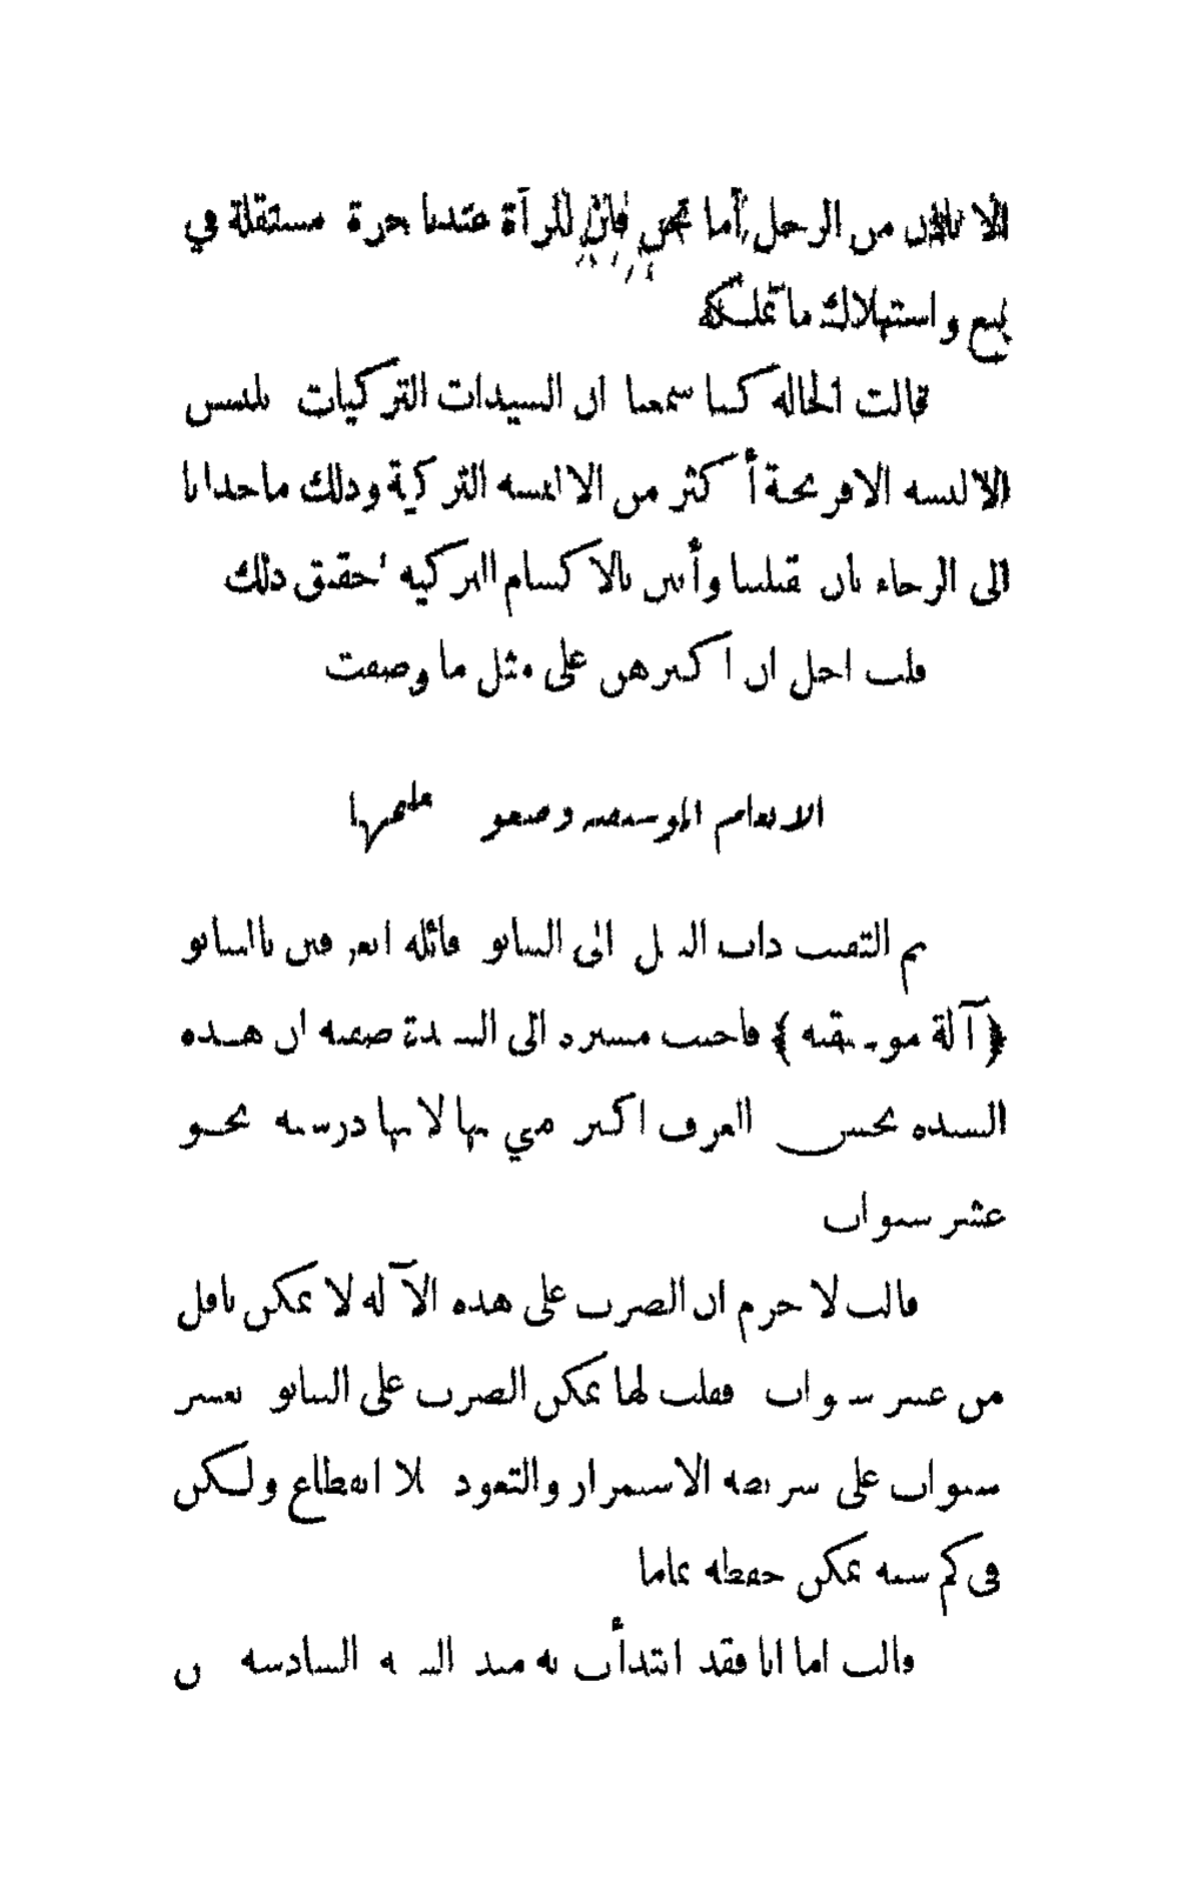 الا باذن من الرجل أما نحن فان المرآة عندنا حرة مستقلة في
بيع واستهلاك ما تملكه
قالت الخالة كنا سمعنا ان السيدات التركيات يلبسن
الالبسة الافرنجية أكثر من الالبسة التركية وذلك ما حدا بنا
الى الرجاء بان تقبلننا وأنتن بالاكسام التركية حقق ذلك
قلت اجل ان اكثرهن على مثل ما وصفت
الانغام الموسيقية وصعوبة
ثم التفتت ذات الدل الى البيانو قائلة اتعرفين بالبيانو
﴿آلة موسيقية﴾ فاجبت مشيرة الى السيدة صفية ان هـذه
السيدة تحسن العزف اكثر مني بها لانها درسته نحو
عشر سنوات
قالت لا جرم ان الضرب على هذه الآلة لا يمكن باقل
من عشر سنوات فقلت لها يمكن الضرب على البيانو بعشر
سنوات على شريطة الاستمرار والتعود بلا انقطاع ولـكن
في كم سنة يمكن حفظه تماما
قالت اما انا فقد ابتدأت به منذ السنة السادسة من